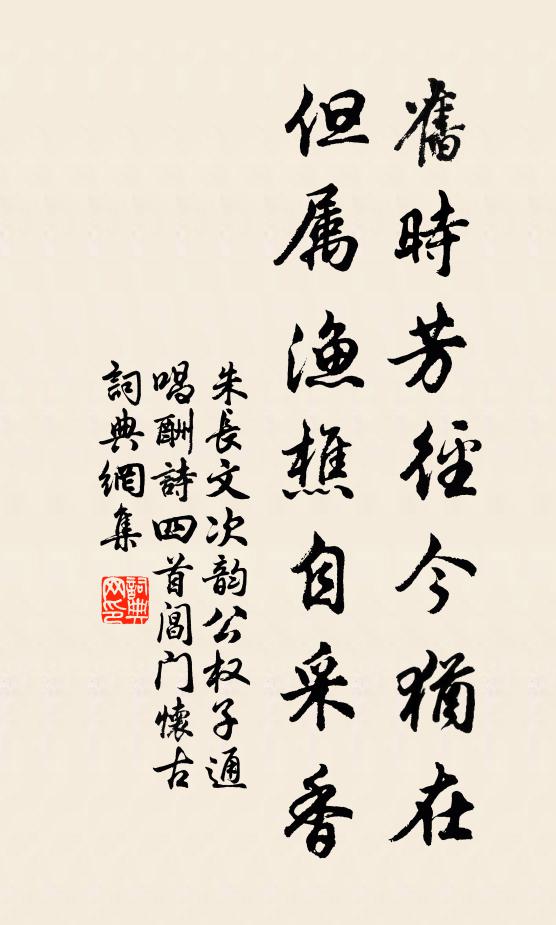 舊時芳徑今猶在
但属漁樵自采香
朱長文次韵公权子通
唱酬詩四首閶门懷古
詞典網集
詞典网印